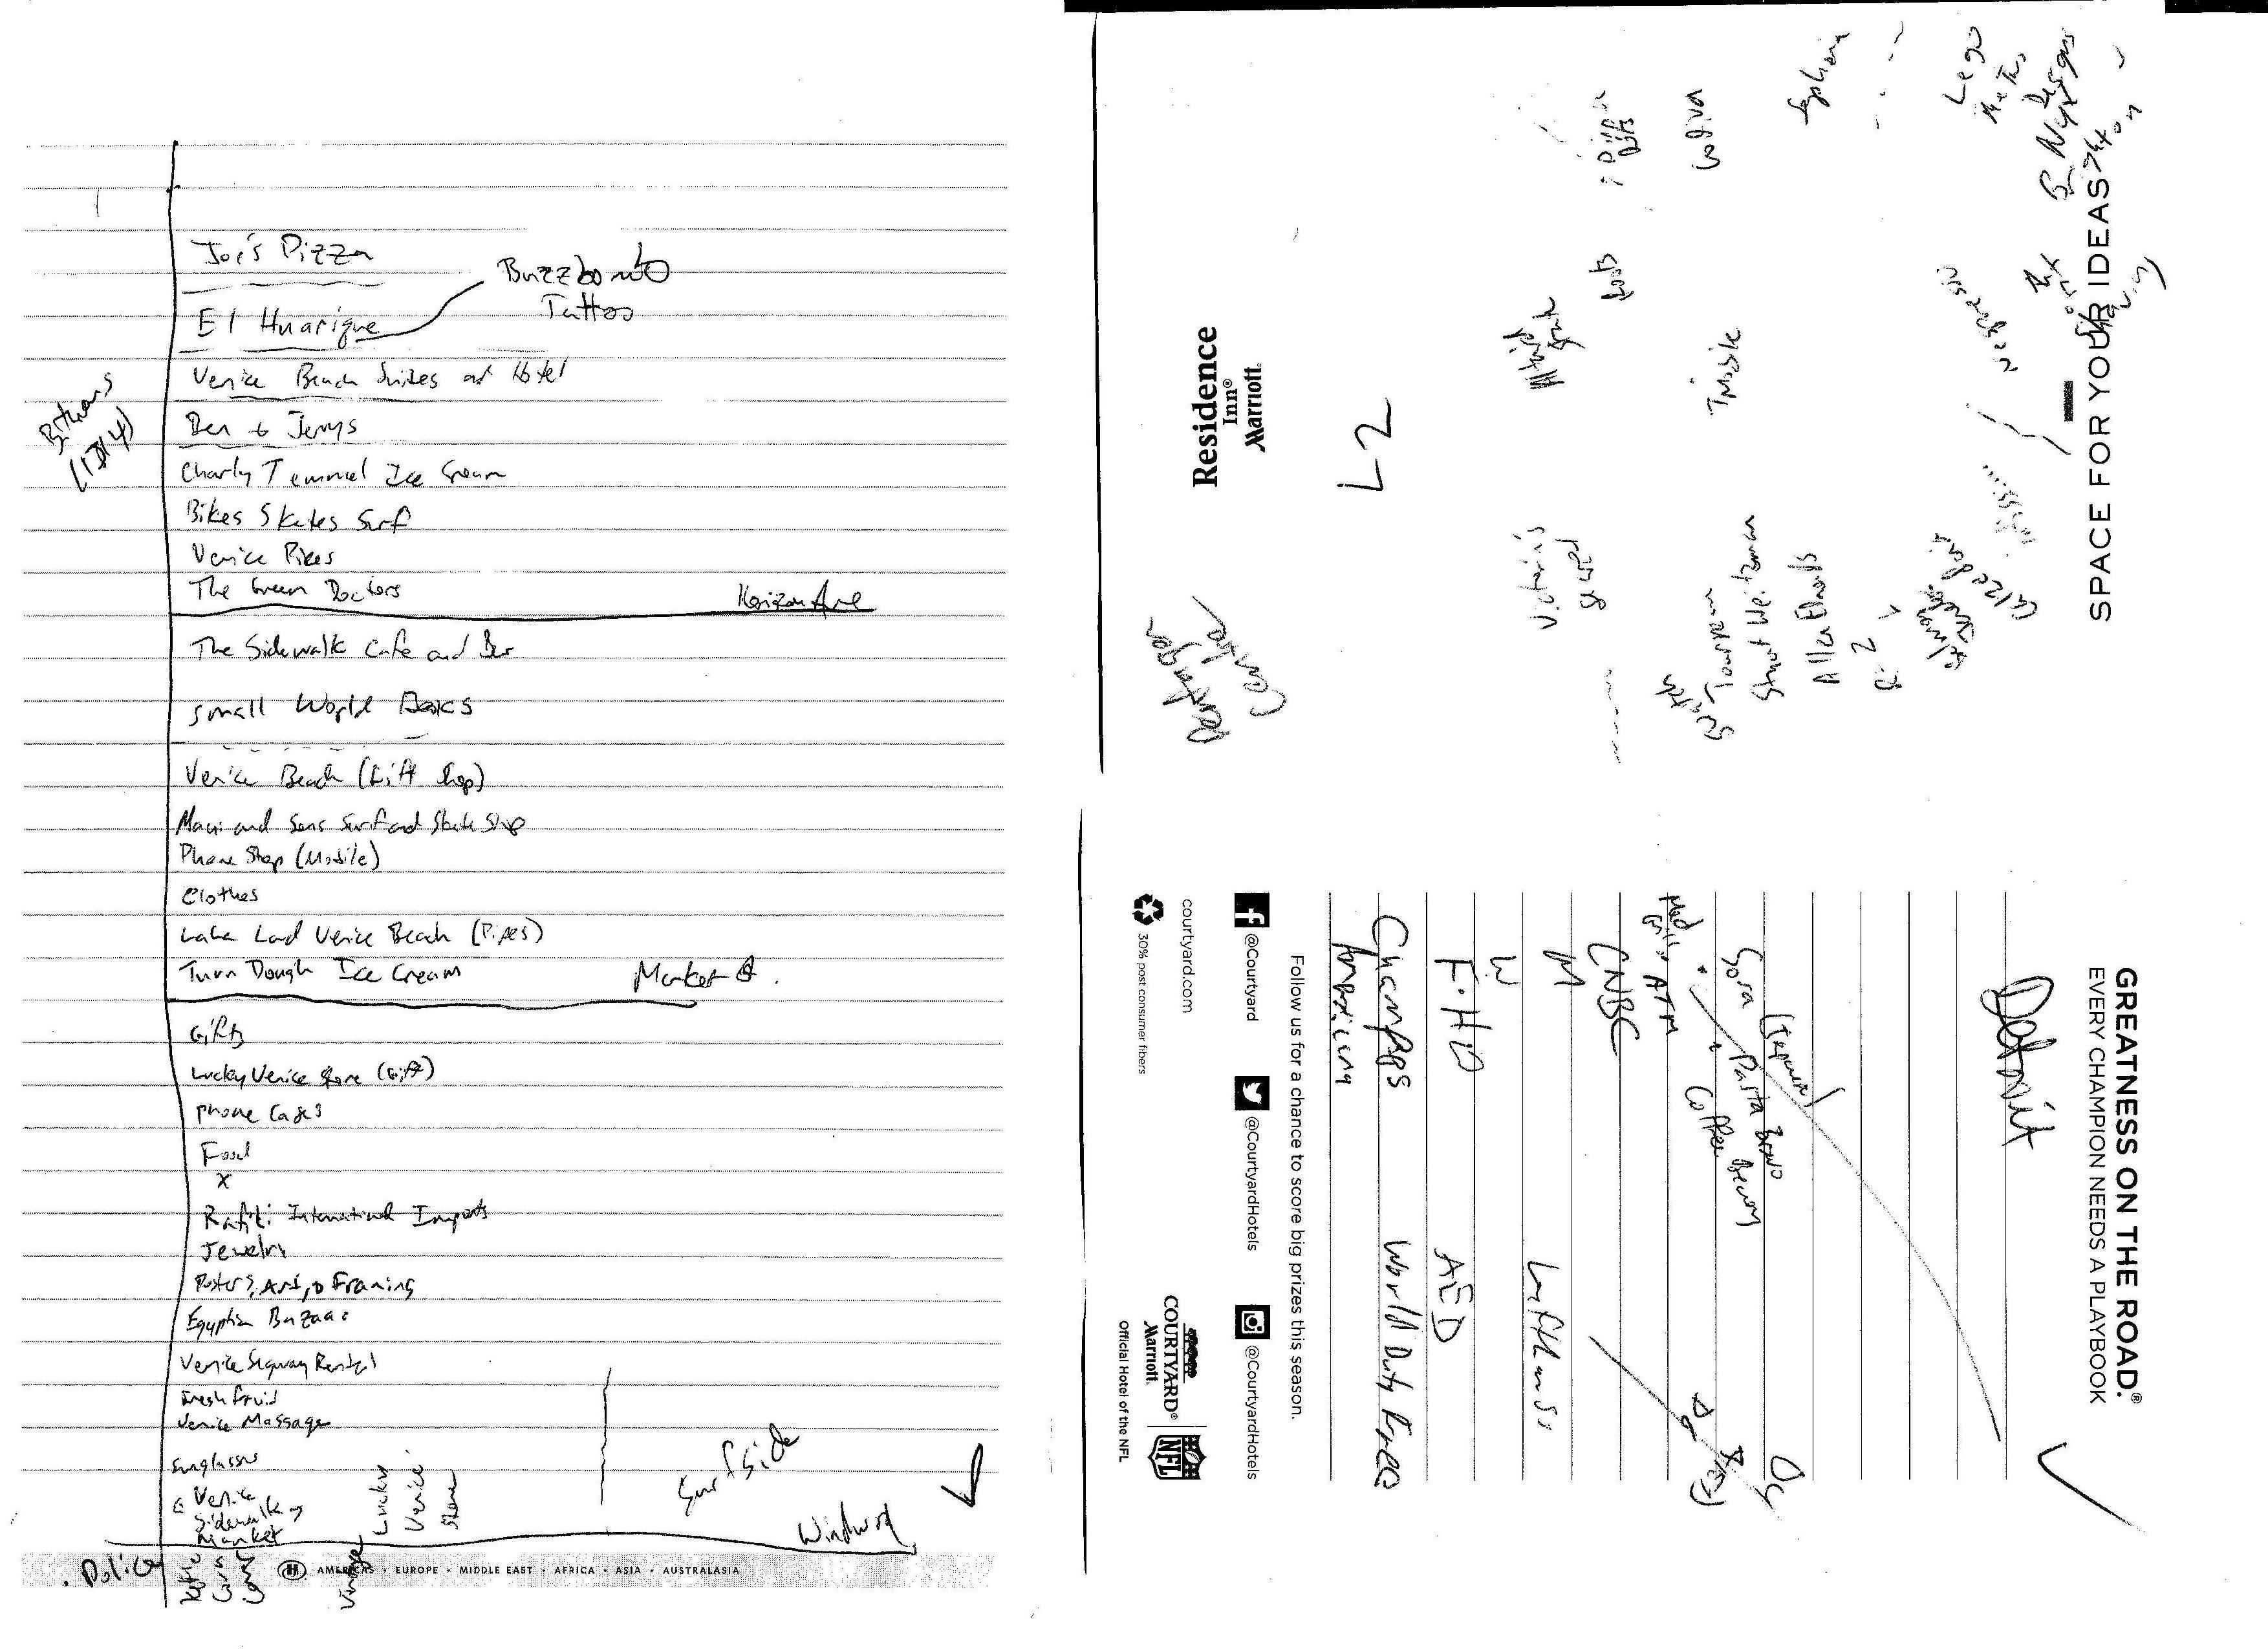 Joe's Pizza
Tattoo
El Huarique
Venice Beach Suites and Hotel
Ben & Jerrys
Charly Temmel Ice Cream
Bikes Skates Surf
Venice Pipes
The Green Doctors
Horizon Ave
The Sidewalk Cafe and Bar
Small World Books
Venice Beach (Gift Shop)
Maui and Sons Surf and Skate Shop
Phone Shop (Mobile)
Clothes
Venice Beach (Pipes)
Turn Dough Ice Cream
Market St.
Gifts
Lucky Venice Store (Gift)
Phone Cases
Food
X
Rafiki International Imports
Jewelry
Posters, Art, & Framing
Egyptian Bazaar
Venice Segway Rental
Fresh Fruit
Venice Massage
Sunglasses
Venice
Sidewalk
Market
Lucky
Venice
Store
Surfside
Windward
Police
Vintage
H AMERICAS • EUROPE • MIDDLE EAST • AFRICA • ASIA • AUSTRALASIA
Residence
Inn®
Marriott.
Pentagon
Centre
L2
Victoria's
Secret
Godiva
Sephora
Lego
Swatch
Tourneau
Stuart Weitzman
Allen Edmonds
SPACE FOR YOUR IDEAS>
GREATNESS ON THE ROAD.®
EVERY CHAMPION NEEDS A PLAYBOOK
Detroit
Sora (Japanese)
Pasta Bravo
Coffee Beanery
Med Grill
ATM
CNBC
M
Lufthansa
W
F.H.D
AED
Champps
Americana
World Duty Free
Follow us for a chance to score big prizes this season.
@Courtyard
@CourtyardHotels
@CourtyardHotels
courtyard.com
30% post consumer fibers
COURTYARD®
Marriott.
NFL
Official Hotel of the NFL